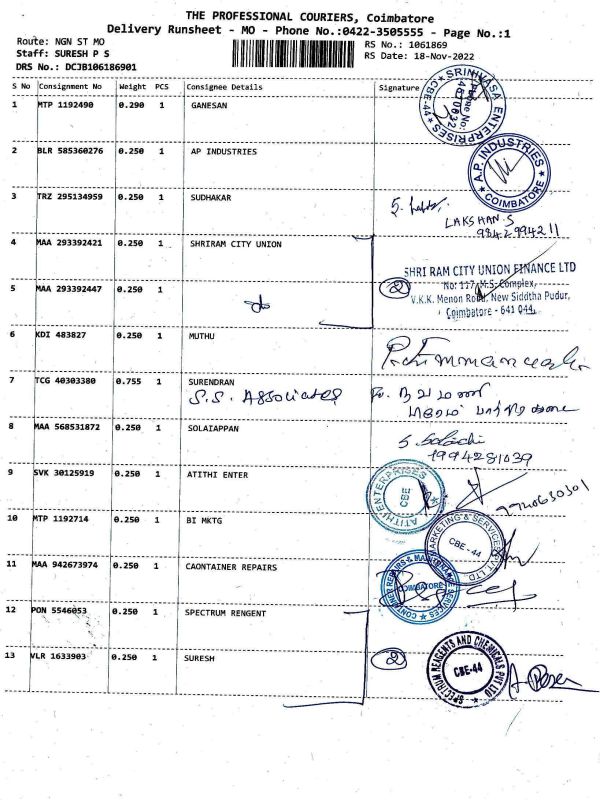 THE PROFESSIONAL COURIERS, Coimbatore
Delivery Runsheet - MO - Phone No.:0422-3505555 - Page No.:1
Route: NGN ST MO
RS No.: 1061869
Staff: SURESH P S
RS Date: 18-Nov-2022
DRS No.: DCJB106186901
S No Consignment No Weight PCS Consignee Details Signature
1 MTP 1192490 0.290 1 GANESAN
SRINIVASA ENTERPRISES CBE-44
Phone No:
2 BLR 585360276 0.250 1 AP INDUSTRIES
A.P. INDUSTRIES COIMBATORE
3 TRZ 295134959 0.250 1 SUDHAKAR
LAKSHAN.S
9842994211
4 MAA 293392421 0.250 1 SHRIRAM CITY UNION
SHRI RAM CITY UNION FINANCE LTD
No: 117, M.S. Complex,
5 MAA 293392447 0.250 1
2
V.K.K. Menon Road, New Siddtha Pudur,
Coimbatore - 641 044.
6 KDI 483827 0.250 1 MUTHU
7 TCG 40303380 0.755 1 SURENDRAN
S.S. Associates
8 MAA 568531872 0.250 1 SOLAIAPPAN
1994281039
9 SVK 30125919 0.250 1 ATITHI ENTER
ATITHI ENTERPRISES CBE
9740630301
10 MTP 1192714 0.250 1 BI MKTG
MARKETING & SERVICES PVT LTD. CBE-44
11 MAA 942673974 0.250 1 CAONTAINER REPAIRS
REPAIRS & SERVICES COIMBATORE
12 PON 5546053 0.250 1 SPECTRUM RENGENT
13 VLR 1633903 0.250 1 SURESH
2
SPECTRUM REAGENTS AND CHEMICALS PVT LTD CBE-44